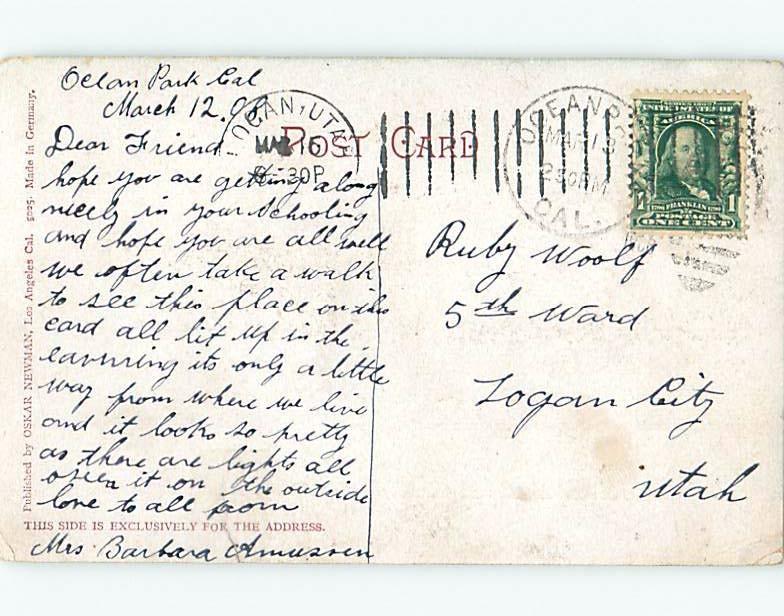 Oclan Park Cal
March 12. 08
Dear Friend
hope you are getting along
nicely in your schooling
and hope you are all well
we often take a walk
to see this place on this
card all lit up in the
eavnring its only a little
way from where we live
and it looks so pretty
as there are lights all
oven it on the outside
love to all from
Mrs Barbara Amussen
THIS SIDE IS EXCLUSIVELY FOR THE ADDRESS.
Published by OSKAR NEWMAN, Los Angeles Cal. 5025. Made in Germany.
POST CARD
LOGAN, UTAH
MAR 16
8-30P
OCEAN P
MAR 13
2 30PM
CAL.
SERIES 1902
UNITED STATES OF
AMERICA
1 FRANKLIN 1
POSTAGE
ONE CENT
Ruby Woolf
5th Ward
Logan City
Utah